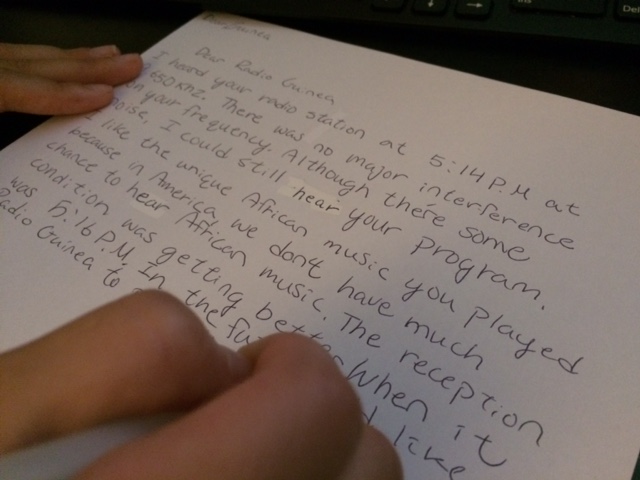 Dear Radio Guinea
I heard your radio station at 5:14 P.M at
9650 khz. There was no major interference
on your frequency. Although there some
noise, I could still hear your program.
I like the unique African music you played
because in America we dont have much
chance to hear African music. The reception
condition was getting better when it
was 5:16 P.M. In the
Radio Guinea to
like